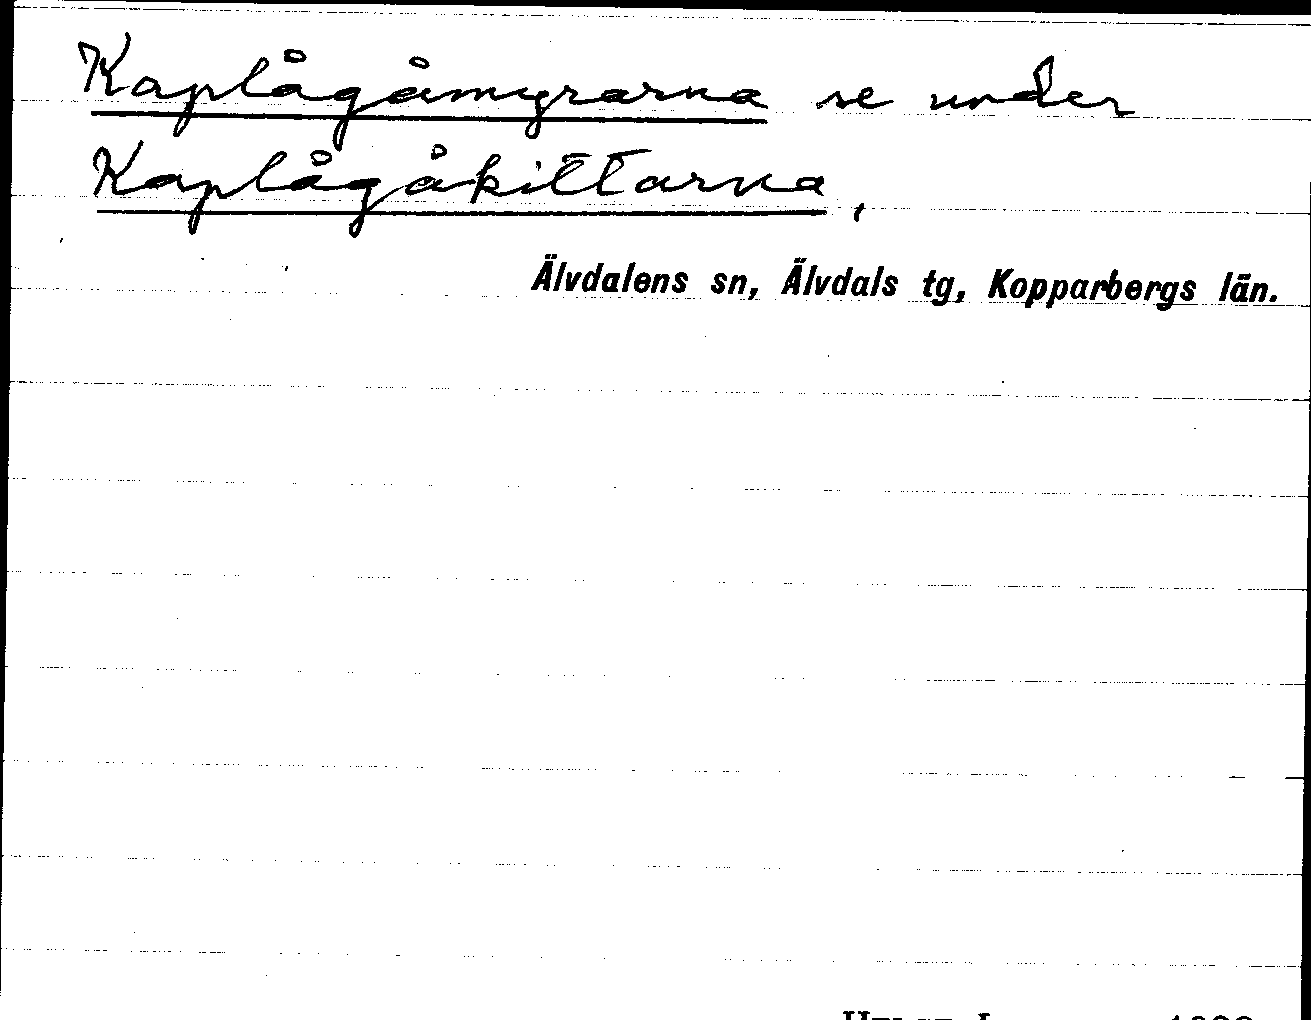 Kaplågåmyrarna se under
Kaplågåkittarna,
Älvdalens sn, Älvdals tg, Kopparbergs län.